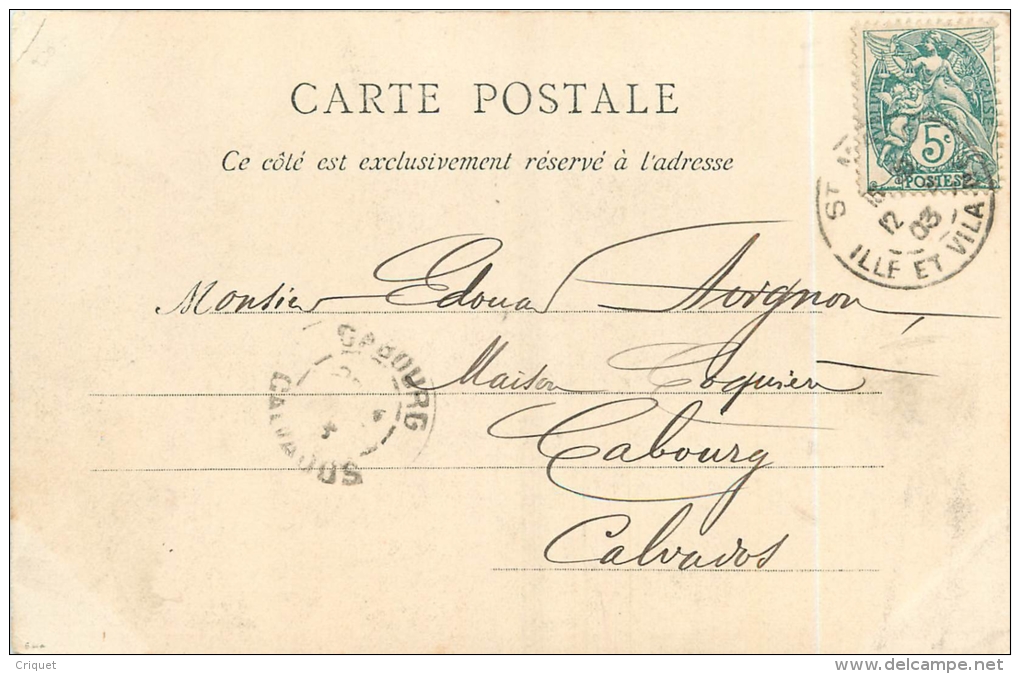 CARTE POSTALE
Ce côté est exclusivement réservé à l'adresse
5c
POSTES
ST
12
03
ILLE ET VILA
Monsieur Edouard Avignon,
Maison Coquière
Cabourg
Calvados
CABOURG
CALVADOS
Criquet
delcampe.net